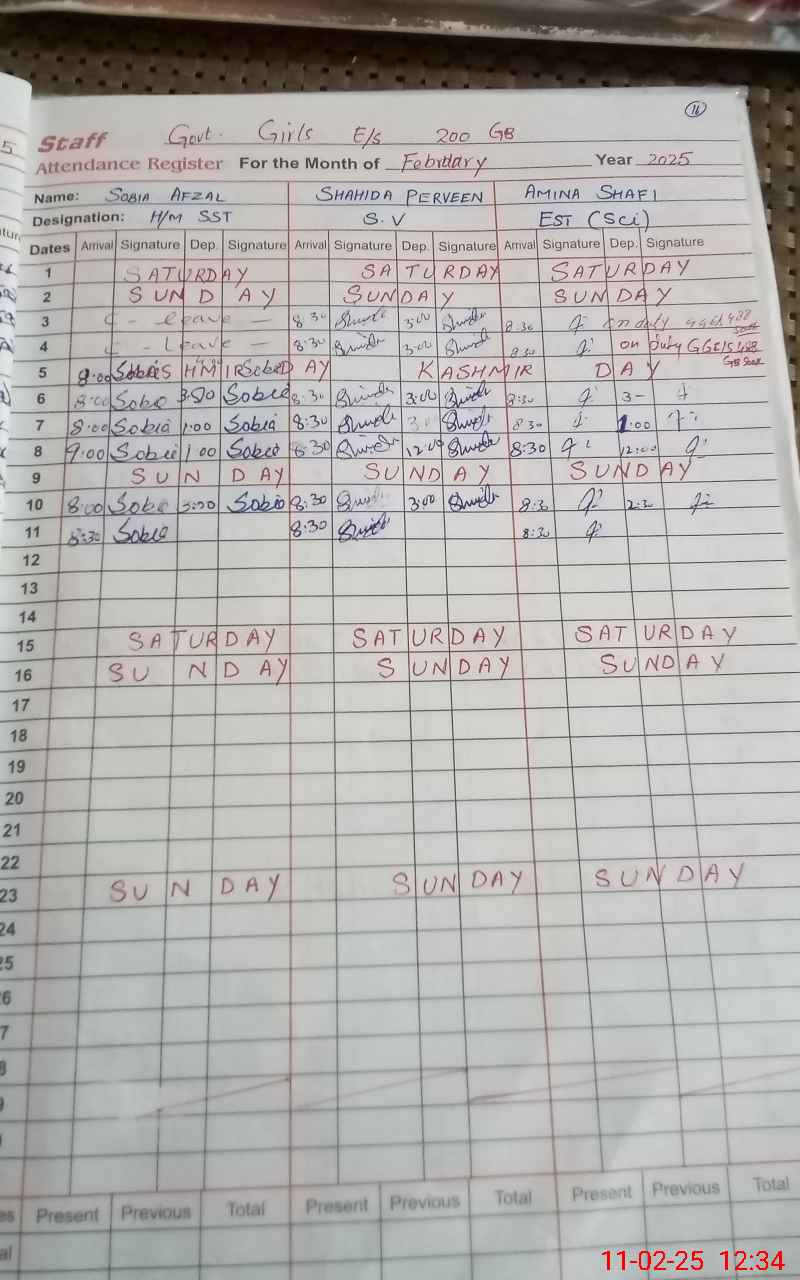 16
Staff Govt. Girls E/S 200 GB
Attendance Register For the Month of February Year 2025
Name: SOBIA AFZAL SHAHIDA PERVEEN AMINA SHAFI
Designation: H/M SST S.V EST (Sci)
Dates Arrival Signature Dep. Signature Arrival Signature Dep. Signature Arrival Signature Dep. Signature
1 SATURDAY SATURDAY SATURDAY
2 SUNDAY SUNDAY SUNDAY
3 - leave - 8:30 3:00 8:30 on duty
4 - Leave - 8:30 3:00 8:30 on duty
5 9:00 Sobia KASHMIR DAY
6 8:00 Sobia Sobia 8:30 3:00 8:30 3-
7 8:00 Sobia 1:00 Sobia 8:30 8:30 1:00
8 9:00 Sobia 1:00 Sobia 8:30 12:00 8:30 12:00
9 SUNDAY SUNDAY SUNDAY
10 8:00 Sobia Sobia 8:30 3:00 8:30
11 8:30 Sobia 8:30 8:30
12
13
14
15 SATURDAY SATURDAY SATURDAY
16 SUNDAY SUNDAY SUNDAY
17
18
19
20
21
22
23 SUNDAY SUNDAY SUNDAY
24
5
6
7
8
Present Previous Total Present Previous Total Present Previous Total
11-02-25 12:34